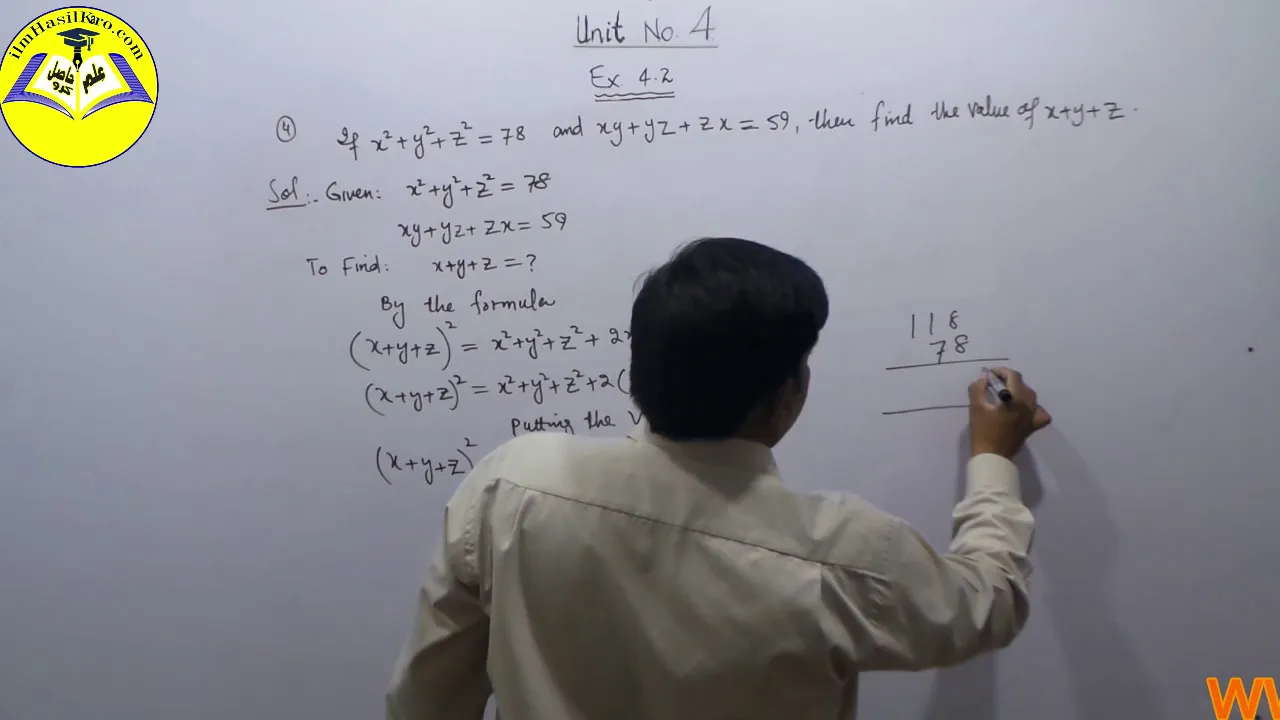 ilmHasilKaro.com
علم حاصل کرو
Unit No. 4
Ex 4.2
④ If x²+y²+z² = 78 and xy+yz+zx = 59, then find the value of x+y+z.
Sol:- Given: x²+y²+z² = 78
xy+yz+zx = 59
To Find: x+y+z = ?
By the formula
(x+y+z)² = x²+y²+z²+2
(x+y+z)² = x²+y²+z²+2(
Putting the
(x+y+z)²
118
78